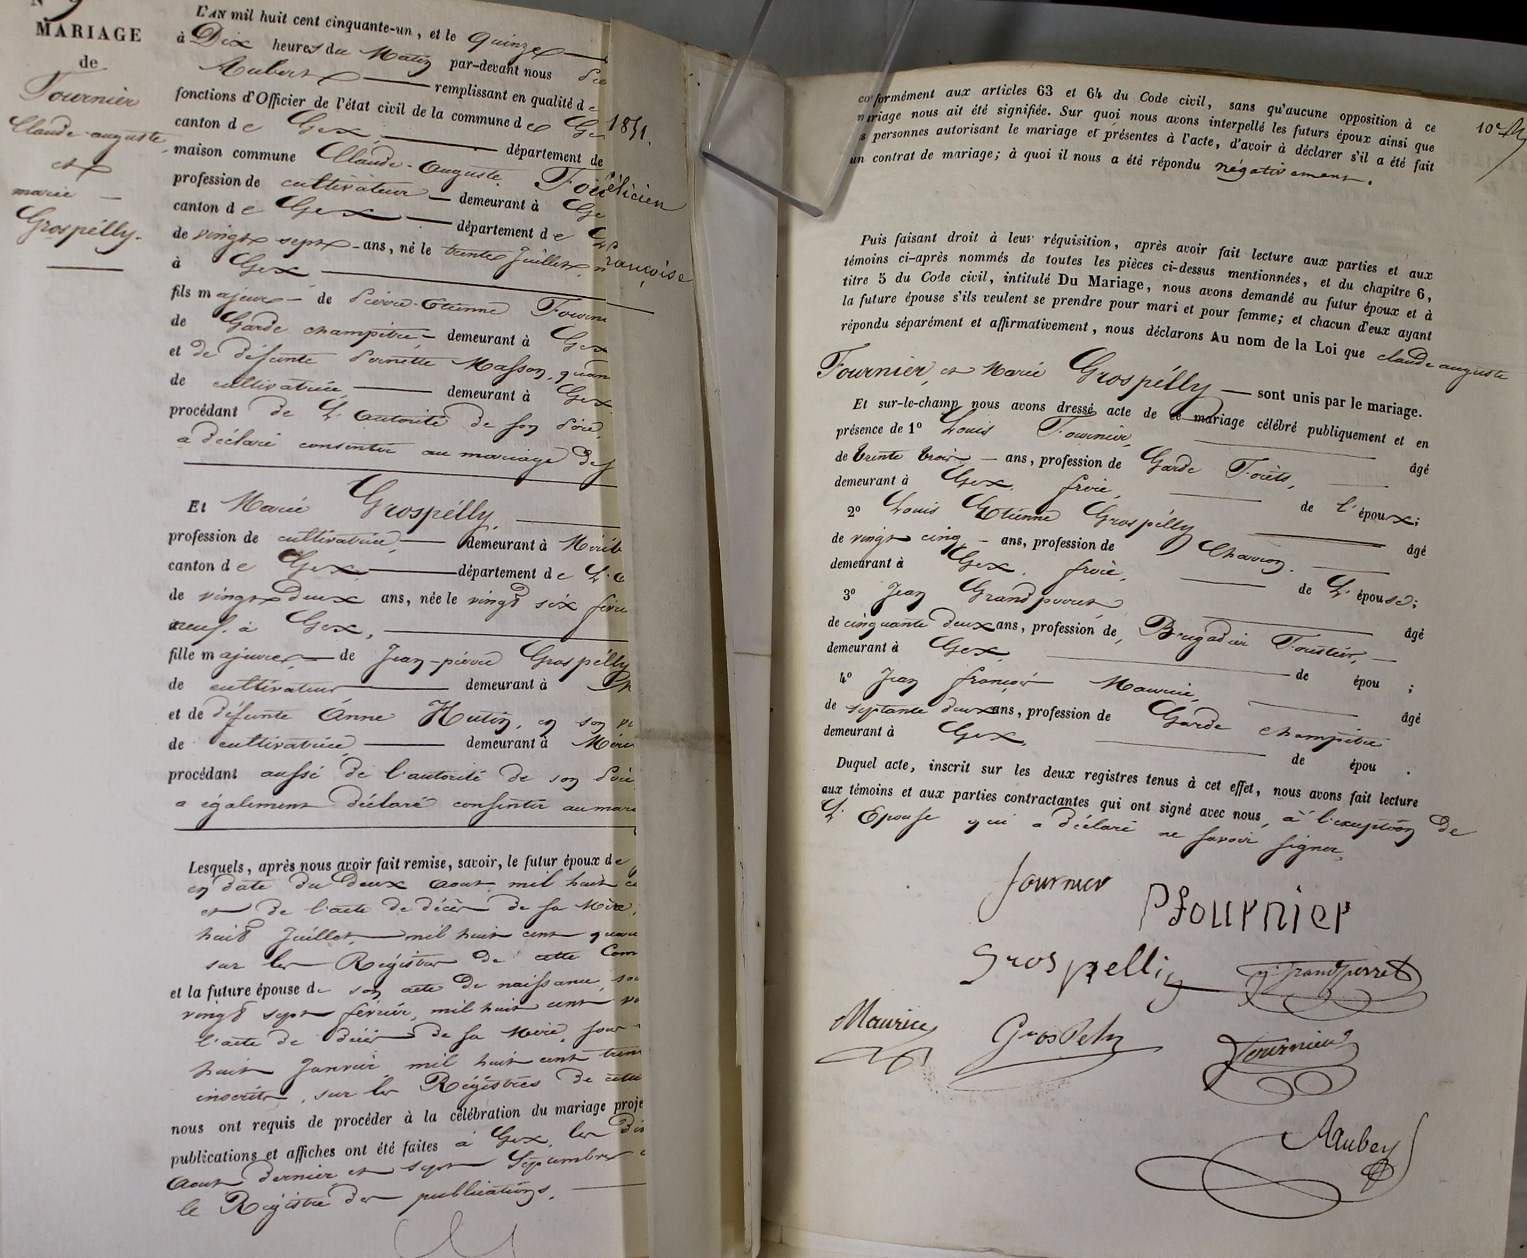 N° 9
MARIAGE
de
Fournier
Claude-auguste
et
marie
Grospélly.
L'AN mil huit cent cinquante-un, et le quinze
à Dix heures du Matin par-devant nous
Aubert remplissant en qualité de
fonctions d'Officier de l'état civil de la commune de Ge
canton de Gex, département de
maison commune Claude-Auguste Fou
profession de cultivateur demeurant à Ge
canton de Gex département de
de vingt sept ans, né le trente Juillet
à Gex
fils majeur de Pierre-Etienne Fourni
de Garde champêtre demeurant à Gex
et de défunte Pernette Masson, quan
de cultivatrice demeurant à Gex
procédant de L'autorité de son Père,
a déclaré consentir au mariage de s
Et Marie Grospélly,
profession de cultivatrice, demeurant à
canton de Gex département de L'
de vingt deux ans, née le vingt six févri
neuf, à Gex,
fille majeure de Jean-pierre Grospélly
de cultivateur demeurant à
et de défunte Anne Hutin, en son
de cultivatrice demeurant à
procédant aussi de l'autorité de son Père
a également déclaré consentir au mari
Lesquels, après nous avoir fait remise, savoir, le futur époux de
en date du deux aout mil huit ce
et de l'acte de décès de sa Mère,
huit Juillet mil huit cent quara
sur les Registres de cette Com
et la future épouse de son acte de naissance,
vingt sept février, mil huit cent
l'acte de décès de sa Mère,
huit Janvier mil huit cent tren
inscrits, sur les Registres de cette
nous ont requis de procéder à la célébration du mariage proje
publications et affiches ont été faites à Gex, les
Aout dernier et sept Septembre
le Registre des publications.
1851.
élicien
rançoise
10e
conformément aux articles 63 et 64 du Code civil, sans qu'aucune opposition à ce
mariage nous ait été signifiée. Sur quoi nous avons interpellé les futurs époux ainsi que
s personnes autorisant le mariage et présentes à l'acte, d'avoir à déclarer s'il a été fait
un contrat de mariage; à quoi il nous a été répondu négativement.
Puis faisant droit à leur réquisition, après avoir fait lecture aux parties et aux
témoins ci-après nommés de toutes les pièces ci-dessus mentionnées, et du chapitre 6,
titre 5 du Code civil, intitulé Du Mariage, nous avons demandé au futur époux et à
la future épouse s'ils veulent se prendre pour mari et pour femme; et chacun d'eux ayant
répondu séparément et affirmativement, nous déclarons Au nom de la Loi que claude auguste
Fournier, et Marie Grospélly sont unis par le mariage.
Et sur-le-champ nous avons dressé acte de ce mariage célébré publiquement et en
présence de 1° Louis Fournier, âgé
de trente trois ans, profession de Garde Forêts,
demeurant à Gex, frère, de l'époux;
2° Louis Etienne Grospélly âgé
de vingt cinq ans, profession de Charron.
demeurant à Gex, frère, de L'épouse;
3° Jean Grandperret âgé
de cinquante deux ans, profession de Brigadier Forestier,
demeurant à Gex, de épou ;
4° Jean françois Maurice, âgé
de septante deux ans, profession de Garde champêtre
demeurant à Gex, de épou .
Duquel acte, inscrit sur les deux registres tenus à cet effet, nous avons fait lecture
aux témoins et aux parties contractantes qui ont signé avec nous, à l'exception de
L'Epouse qui a déclaré ne savoir signer.
fournier
Pfournier
Grospelliy
Grandperret
Maurice
Fournier